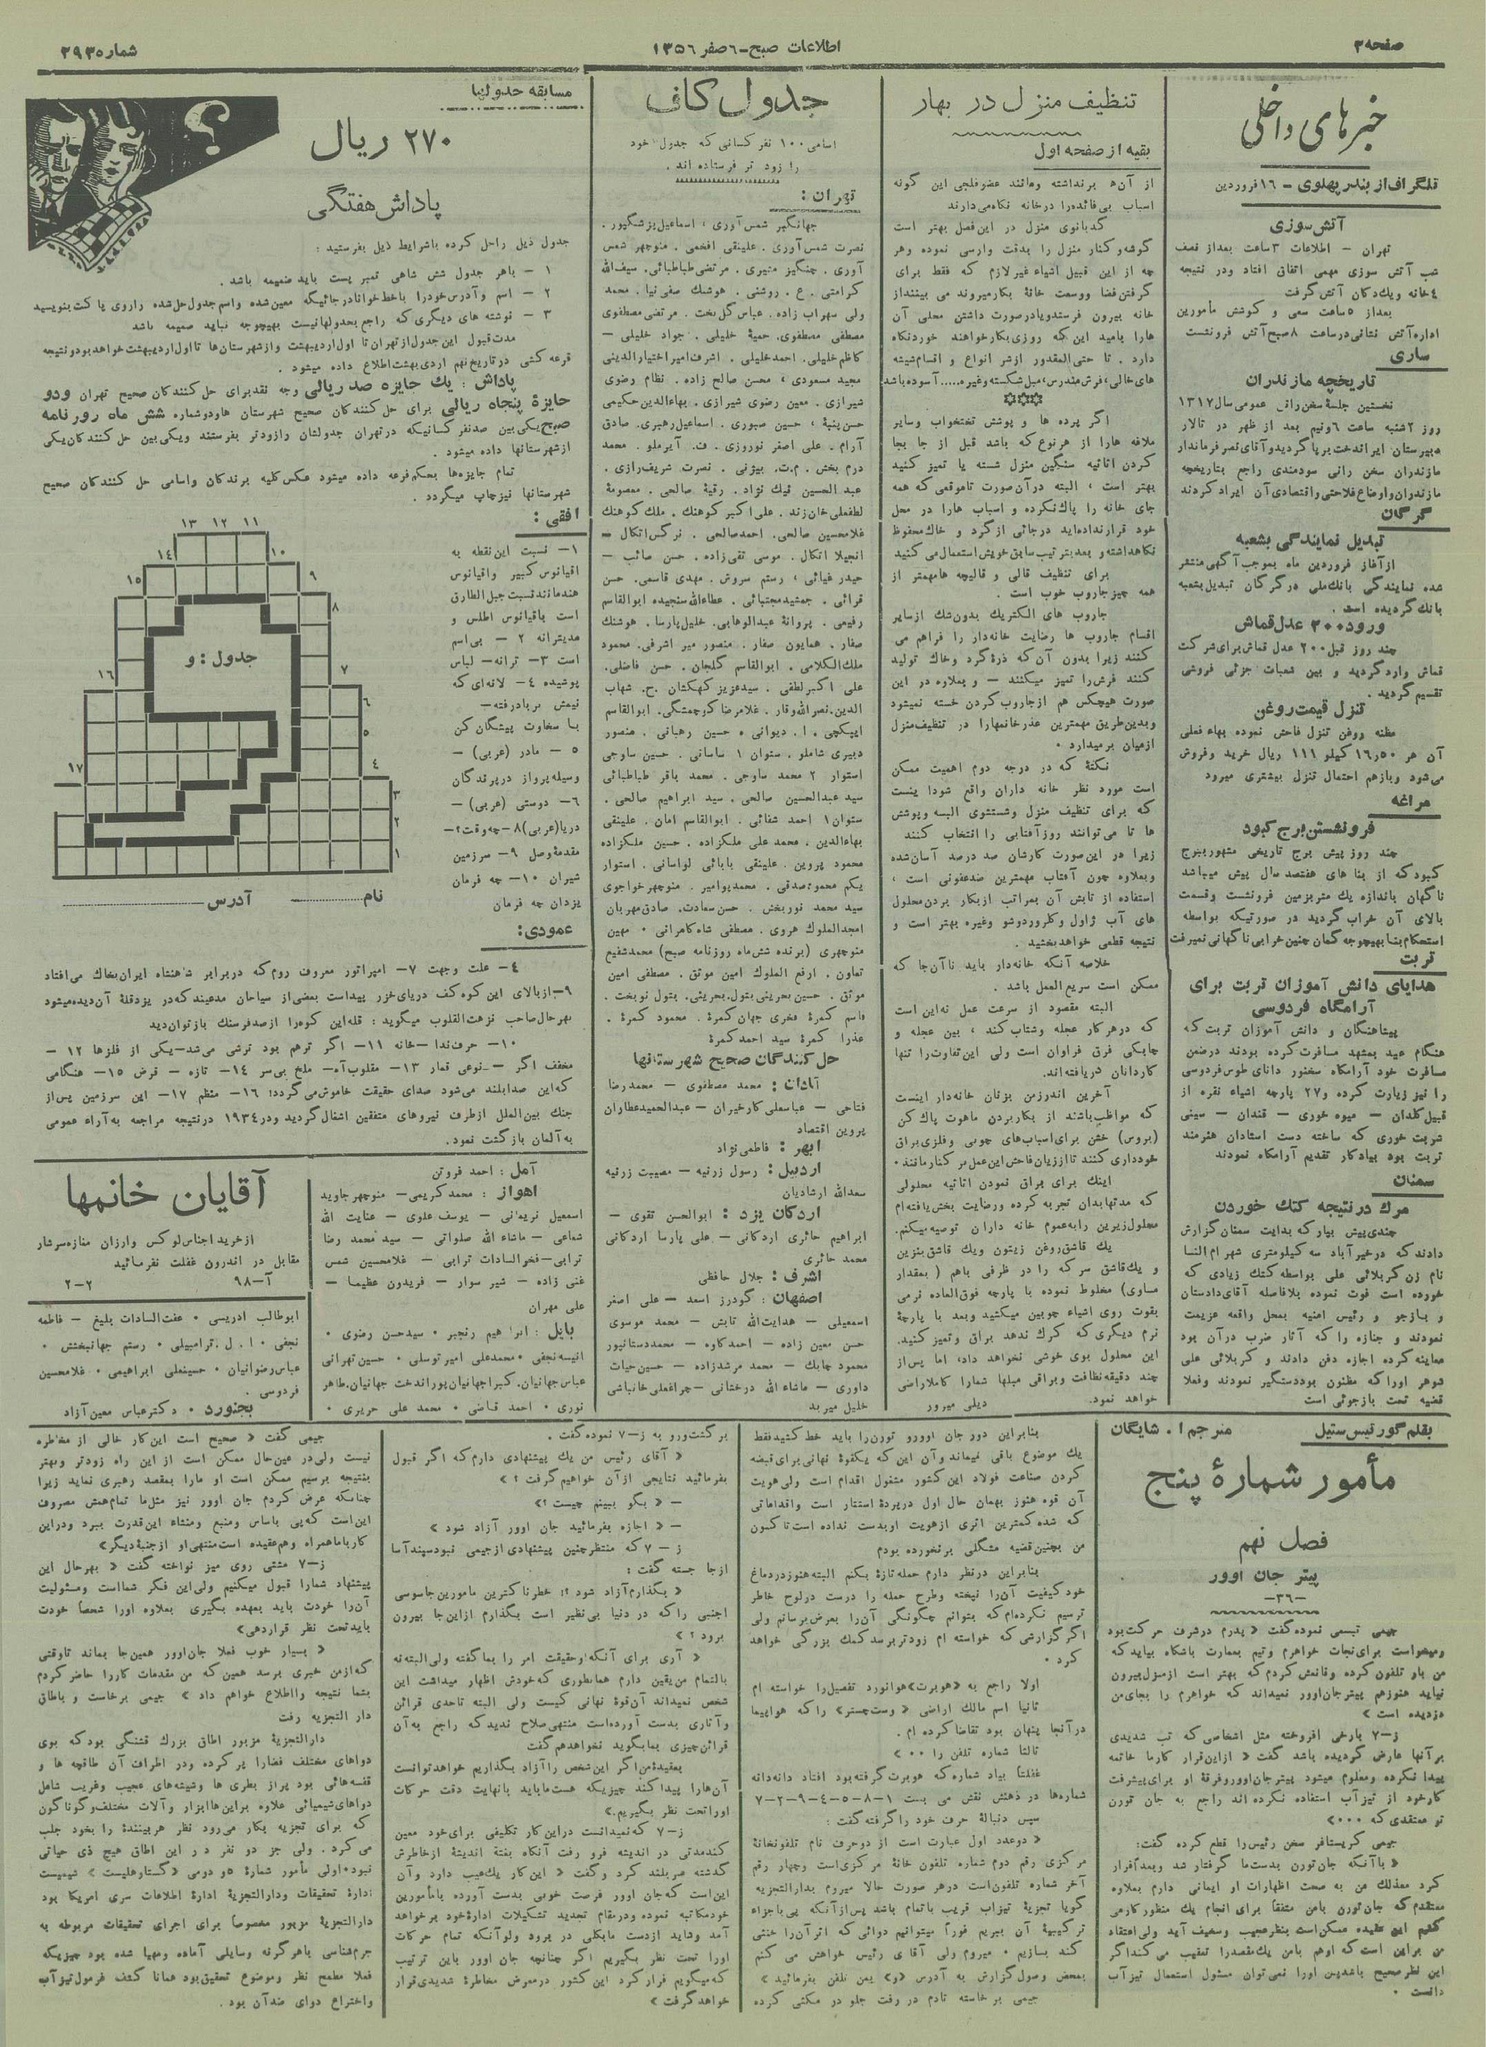 صفحه ۲
اطلاعات صبح - ٦ صفر ۱۳۵٦
شماره ۲۹۳۵
خبرهای داخلی
تلگراف از بندر پهلوی - ۱٦ فروردین
آتش سوزی
تهران - اطلاعات ۳ ساعت بعداز نصف
شب آتش سوزی مهمی اتفاق افتاد ودر نتیجه
٤ خانه ویك دکان آتش گرفت
بعداز ٥ ساعت سعی و کوشش مأمورین
اداره آتش نشانی درساعت ۸ صبح آتش فرونشست
ساری
تاریخچه مازندران
نخستین جلسۀ سخن رانی عمومی سال ۱۳۱۷
روز ۲ شنبه ساعت ٦ ونیم بعد از ظهر در تالار
دبیرستان ایراندخت برپا گردید و آقای نصر فرماندار
مازندران سخن رانی سودمندی راجع بتاریخچه
مازندران واوضاع فلاحتی واقتصادی آن ایراد کردند
گرگان
تبدیل نمایندگی بشعبه
از آغاز فروردین ماه بموجب آگهی منتشر
شده نمایندگی بانك ملی در گرگان تبدیل بشعبه
بانك گردیده است .
ورود ۲۰۰ عدل قماش
چند روز قبل ۲۰۰ عدل قماش برای شرکت
قماش وارد گردید و بین شعبات جزئی فروشی
تقسیم گردید .
تنزل قیمت روغن
مظنه روغن تنزل فاحش نموده بهاء فعلی
آن هر ١٦٫٥٠ کیلو ۱۱۱ ریال خرید وفروش
می‌شود وبازهم احتمال تنزل بیشتری میرود
مراغه
فرونشستن برج کبود
چند روز پیش برج تاریخی مشهور ببرج
کبود که از بنا های هفتصد سال پیش میباشد
ناگهان باندازه یك متر بزمین فرونشست وقسمت
بالای آن خراب گردید در صورتیکه بواسطه
استحکام بنا بهیچوجه گمان چنین خرابی ناگهانی نمیرفت
تربت
هدایای دانش آموزان تربت برای
آرامگاه فردوسی
پیشاهنگان و دانش آموزان تربت که
هنگام عید بمشهد مسافرت کرده بودند درضمن
مسافرت خود آرامگاه سخنور دانای طوس فردوسی
را نیز زیارت کرده و ۲۷ پارچه اشیاء نقره از
قبیل گلدان - میوه خوری - قندان - سینی
شربت خوری که ساخته دست استادان هنرمند
تربت بود بیادگار تقدیم آرامگاه نمودند
سمنان
مرك در نتیجه کتك خوردن
دادند که در خیرآباد سه کیلومتری شهر ام النسا
نام زن کربلائی علی بواسطه کتك زیادی که
خورده است فوت نموده بلافاصله آقای دادستان
و بازجو و رئیس امنیه بمحل واقعه عزیمت
نمودند و جنازه را که آثار ضرب در آن بود
معاینه کرده اجازه دفن دادند و کربلائی علی
شوهر اورا که مظنون بود دستگیر نمودند وفعلا
قضیه تحت بازجوئی است
تنظیف منزل در بهار
بقیه از صفحه اول
از آن‌ها برنداشته ومانند عضو فلجی این گونه
اسباب بی‌فائده را در خانه نگاه می‌دارند
کدبانوی منزل در این فصل بهتر است
گوشه و کنار منزل را بدقت وارسی نموده وهر
چه از این قبیل اشیاء غیر لازم که فقط برای
گرفتن فضا ووسعت خانۀ بکار میروند می بینند از
خانه بیرون فرستد و یا در صورت داشتن محلی آن
هارا بامید این که روزی بکار خواهند خورد نگاه
دارد . تا حتی المقدور از شر انواع و اقسام شیشه
های خالی، فرش مندرس، مبل شکسته وغیره..... آسوده باشد
اگر پرده ها و پوشش تختخواب وسایر
ملافه هارا از هر نوع که باشد قبل از جا بجا
کردن اثاثیه سنگین منزل شسته یا تمیز کنید
بهتر است ، البته در آن صورت تا موقعی که همه
جای خانه را پاك نکرده و اسباب هارا در محل
خود قرار نداده‌اید در جائی از گرد و خاك محفوظ
نگاهداشته و بعد بترتیب سابق خویش استعمال می کنید
برای تنظیف قالی و قالیچه ها مهمتر از
همه چیز جاروب خوب است .
جاروب های الکتریك بدون شك از سایر
اقسام جاروب ها رضایت خانه‌دار را فراهم می
کنند زیرا بدون آن که ذرۀ گرد وخاك تولید
کنند فرش را تمیز میکنند - و بعلاوه در این
صورت هیچکس هم از جاروب کردن خسته نمیشود
وبدین طریق مهمترین عذر خانمهارا در تنظیف منزل
ازمیان برمیدارد .
نکتۀ که در درجه دوم اهمیت ممکن
است مورد نظر خانه داران واقع شود اینست
که برای تنظیف منزل وشستشوی البسه وپوشش
ها تا می‌توانند روز آفتابی را انتخاب کنند
زیرا در این صورت کارشان صد درصد آسان شده
وبعلاوه چون آفتاب مهمترین ضدعفونی است ،
استفاده از تابش آن بمراتب از بکار بردن محلول
های آب ژاول وکلرور دوشو وغیره بهتر است و
نتیجه قطعی خواهد بخشید .
خلاصه آنکه خانه‌دار باید تا آن جا که
ممکن است سریع العمل باشد .
البته مقصود از سرعت عمل نه این است
که در هر کار عجله وشتاب کند ، بین عجله و
چابکی فرق فراوان است ولی این تفاوت را تنها
کاردانان دریافته‌اند.
آخرین اندرز من بزنان خانه‌دار اینست
که مواظب باشند از بکار بردن ماهوت پاك کن
(بروس) خشن برای اسباب‌های چوبی وفلزی براق
خودداری کنند تا از زیان فاحش این عمل بر کنار مانند.
اینك برای براق نمودن اثاثیه محلولی
که مدتها بدان تجربه کرده ورضایت بخش یافته‌ام
محلول زیرین را به عموم خانه داران توصیه میکنم.
یك قاشق روغن زیتون ویك قاشق بنزین
و یك قاشق سرکه را در ظرفی باهم ( بمقدار
مساوی) مخلوط نموده با پارچه فوق العاده نرمی
بقوت روی اشیاء چوبین میکشید وبعد با پارچۀ
نرم دیگری که کرك ندهد براق وتمیز کنید.
این محلول بوی خوشی نخواهد داد، اما پس از
چند دقیقه نظافت وبراقی مبلها شمارا کاملا راضی
خواهد نمود.
جدول کاف
اسامی ۱۰۰ نفر کسانی که جدول خود
را زود تر فرستاده اند .
تهران :
جهانگیر شمس آوری ، اسماعیل پزشگپور .
نصرت شمس آوری . علینقی افخمی . منوچهر شمس
آوری . چنگیز منیری . مرتضی طباطبائی . سیف الله
کرامتی . ع . روشنی . هوشنك صفی نیا . محمد
ولی سهراب زاده . عباس گل بخت . مرتضی مصطفوی
مصطفی مصطفوی. حمیۀ خلیلی . جواد خلیلی -
کاظم خلیلی. احمد خلیلی . اشرف امیر اختیارالدینی
مجید مسعودی ، محسن صالح زاده . نظام رضوی
شیرازی . معین رضوی شیرازی . بهاءالدین حکیمی
حسن بنیۀ ، حسین صبوری . اسماعیل رهبری. صادق
آرام . علی اصغر نوروزی . ف. آیرملو . محمد
درم بخش . م.ت. بیژنی . نصرت شریف رازی .
عبد الحسین نیك نژاد . رقیۀ صالحی . معصومۀ
لطفعلی خان زند . علی اکبر کوهنك . ملك کوهنك
غلامحسین صالحی. احمد صالحی . نرگس اتکال -
انجیلا اتکال. موسی تقی زاده . حسن صائب -
حیدر غیائی ، رستم سروش . مهدی قاسمی. حسن
قرائی . جمشید مجتبائی . عطاءالله سنجیده ابوالقاسم
رفیعی . پروانۀ عبدالوهابی. خلیل پارسا. هوشنك
صفار . همایون صفار . منصور میر اشرفی. محمود
ملك الکلامی . ابوالقاسم گلچان. حسن فاضلی.
علی اکبر لطفی . سید عزیز کهکشان .ح. شهاب
الدین. نصرالله وقار . غلامرضا کوچمشگی. ابوالقاسم
ایپکچی . ا . دیوانی . حسین رهبانی . منصور
دبیری شاملو . ستوان ۱ ساسانی . حسین ساوجی
استوار ۲ محمد ساوجی . محمد باقر طباطبائی
سید عبدالحسین صالحی . سید ابراهیم صالحی .
ستوان ۱ احمد شفائی . ابوالقاسم امان . علینقی
بهاءالدین . محمد علی ملکزاده . حسین ملکزاده
محمود پروین . علینقی بابائی لواسانی . استوار
یکم محمود صدقی . محمد پوامیر . منوچهر خواجوی
سید محمد نوربخش . حسن سعادت. صادق مهربان
امجدالملوك هروی . مصطفی شاه کامرانی . مهین
منوچهری (برنده شش ماه روزنامه صبح) محمد شفیع
تعاون . ارفع الملوك امین موثق . مصطفی امین
موثق . حسین بحرینی بتول. بحرینی. بتول نوبخت .
قاسم کمرۀ فخری جهان کمرۀ . محمود کمرۀ .
عذرا کمرۀ سید احمد کمرۀ
حل کنندگان صحیح شهرستانها
آبادان : محمد مصطفوی - محمدرضا
فتاحی - عباسعلی کارخیران - عبدالحمید عطاران
پروین اقتصاد
ابهر : فاطمی نژاد
اردبیل : رسول زرنیه - مصیبت زرنیه
سعدالله ارشادیان
اردکان یزد : ابوالحسن تقوی -
ابراهیم حائری اردکانی - علی پارسا اردکانی
محمد حائری
اشرف : جلال حافظی
اصفهان : گودرز اسعد - علی اصغر
اسمعیلی - هدایت الله تابش - محمد موسوی
حسن معین زاده - احمد کاوه - محمد دستانپور
محمود چابك - محمد مرشد زاده - حسین حیات
داوری - ماشاء الله درخشانی - چراغعلی خانباشی
مسابقه جدولها
۲۷۰ ریال
پاداش هفتگی
جدول ذیل را حل کرده باشرایط ذیل بفرستید :
۱ - باهر جدول شش شاهی تمبر پست باید ضمیمه باشد .
۲ - اسم و آدرس خودرا باخط خوانا در جائیکه معین شده واسم جدول حل شده را روی پاکت بنویسید
۳ - نوشته های دیگری که راجع بجدولها نیست بهیچوجه نباید ضمیمه باشد
مدت قبول این جدول از تهران تا اول اردیبهشت واز شهرستان ها تا اول اردیبهشت خواهد بود و نتیجه
قرعه کشی در تاریخ نهم اردی بهشت اطلاع داده میشود .
پاداش : یك جایزه صد ریالی وجه نقد برای حل کنندگان صحیح تهران ودو
جایزۀ پنجاه ریالی برای حل کنندگان صحیح شهرستان ها ودو شماره شش ماه روزنامه
صبح یکی بین صد نفر کسانیکه در تهران جدولشان را زودتر بفرستند ویکی بین حل کنندگان یکی
از شهرستانها داده میشود .
تمام جایزه‌ها بحکم قرعه داده میشود عکس کلیه برندگان واسامی حل کنندگان صحیح
شهرستانها نیز چاپ میگردد .
افقی :
۱- نسبت این نقطه به
اقیانوس کبیر واقیانوس
هند مانند نسبت جبل الطارق
است باقیانوس اطلس و
مدیترانه ۲ - بی اسم
است ۳- ترانه- لباس
پوشیده ٤- لانه‌ای که
نیمش بر باد رفته-
با سخاوت پیشگان کن
٥ - مادر (عربی) -
وسیله پرواز در پرندگان
٦- دوستی (عربی) -
دریا (عربی) ۸- چه وقت؟-
مقدمۀ وصل ۹- سرزمین
شیران ۱۰- چه فرمان
یزدان چه فرمان
۱۳ ۱۲ ۱۱
۱٤ ۱۰
۱٥ ۹
۸
جدول : و
۷
۱٦
٦
٥
۱۷ ٤
۳
۲
۱
نام ............ آدرس ....................
عمودی :
٤- علت وجهت ۷- امپراتور معروف روم که در برابر شاهنشاه ایران بخاك می‌افتاد
۹- از بالای این کوه کف دریای خزر پیداست بعضی از سیاحان مدعیند که در یزد قلۀ آن دیده میشود
بهر حال صاحب نزهت القلوب میگوید : قله این کوه را از صد فرسنك باز توان دید
۱۰- حرف ندا - خانه ۱۱- اگر ترهم بود ترشی می‌شد - یکی از فلزها ۱۲-
مخفف اگر - نوعی قمار ۱۳- مقلوب آه - ملخ بی‌سر ۱٤- تازه - قرض ۱٥- هنگامی
که این صدا بلند می‌شود صدای حقیقت خاموش می‌گردد! ۱٦- منظم ۱۷- این سرزمین پس از
جنك بین الملل از طرف نیروهای متفقین اشغال گردید ودر ۱۹۳٤ در نتیجه مراجعه به آراء عمومی
به آلمان بازگشت نمود.
آمل : احمد فروتن
اهواز : محمد کریمی - منوچهر جاوید
اسمعیل نریمانی - یوسف علوی - عنایت الله
شعاعی - ماشاء الله صلواتی - سید محمد رضا
ترابی - فخر السادات ترابی - غلامحسین شمس
غنی زاده - شیر سوار - فریدون عظیما -
علی مهران
بابل : ابراهیم رنجبر . سید حسن رضوی .
انیسه نجفی . محمد علی امیر توسلی . حسین تهرانی
عباس جهانیان. کبرا جهانیان پوراندخت جهانیان. طاهر
نوری . احمد قاضی . محمد علی حریری .
آقایان خانمها
از خرید اجناس لوکس وارزان مغازه سرشار
مقابل در اندرون غفلت نفرمائید
آ-۹۸ ۲-۲
ابوطالب ادریسی . عفت السادات بلیغ - فاطمه
نجفی . ا . ل. ترامپیلی . رستم جهانبخش .
عباس رضوانیان . حسینعلی ابراهیمی . غلامحسین
فردوسی .
بجنورد . دکتر عباس معین آزاد
بقلم گورتیس ستیل مترجم ا . شایگان
مأمور شمارۀ پنج
فصل نهم
پیتر جان اوور
-۳٦-
جیمی تبسمی نموده گفت « پدرم در شرف حرکت بود
ومیخواست برای نجات خواهرم وتیم بعمارت باشگاه بیاید که
من باو تلفون کرده وقانعش کردم که بهتر است از منزل بیرون
نیاید هنوز هم پیتر جان اوور نمیداند که خواهرم را بجای من
دزدیده است »
ز-۷ بارخی افروخته مثل اشخاصی که تب شدیدی
بر آنها عارض گردیده باشد گفت « از این قرار کار ما خاتمه
پیدا نکرده ومعلوم میشود پیتر جان اوور وفرقۀ او برای پیشرفت
کار خود از تیز آب استفاده نکرده اند راجع به جان تورن
تو معتقدی که ۰۰۰»
جیمی کریستافر سخن رئیس را قطع کرده گفت:
« با آنکه جان تورن بدست ما گرفتار شد وبعد اقرار
کرد معذلك من به صحت اظهارات او ایمانی دارم بعلاوه
معتقدم که جان تورن باهن متفقا برای انجام یك منظور کار می
کنیم این عقیده ممکن است بنظر عجیب وضعیف آید ولی اعتقاد
من براین است که اوهم بامن یك مقصد را تعقیب می کند اگر
این نظر صحیح باشد پس اورا نمی‌توان مسئول استعمال تیز آب
دانست .
بنابراین دور جان اوورو تورن را باید خط کشید فقط
یك موضوع باقی میماند وآن این که یکقوۀ نهانی برای قبضه
کردن صنایع فولاد این کشور مشغول اقدام است ولی هویت
آن قوه هنوز بهمان حال اول در پردۀ استتار است واقداماتی
که شده کمترین اثری از هویت او بدست نداده است تا کنون
من بچنین قضیه مشکلی برنخورده بودم
بنابراین در نظر دارم حمله تازۀ بکنم البته هنوز در دماغ
خود کیفیت آن را نپخته وطرح حمله را درست در لوح خاطر
ترسیم نکرده‌ام که بتوانم چگونگی آن را بعرض برسانم ولی
اگر گزارشی که خواسته ام زودتر برسد کمك بزرگی خواهد
کرد .
اولا راجع به «هوبرت» هوانورد تفصیل را خواسته ام
ثانیا اسم مالك اراضی « وست چستر» را که هواپیما
در آنجا پنهان بود تقاضا کرده ام .
ثالثا شماره تلفن را ۰۰»
غفلتا بیاد شماره که هوبرت گرفته بود افتاد دانه دانه
شماره‌ها در ذهنش نقش می بست ۱-۸-٥-٤-۹-۲-۷
سپس دنبالۀ حرف خود را گرفته گفت:
« دو عدد اول عبارت است از دو حرف نام تلفونخانۀ
مرکزی رقم دوم شماره تلفون خانۀ مرکزی است وچهار رقم
آخر شماره تلفون است در هر صورت حالا میروم بدارالتجزیه
گویا تجزیۀ تیزاب قریب باتمام باشد پس از آنکه پی باجزاء
ترکیبیۀ آن ببریم فوراً میتوانیم دوائی که اثر آن را خنثی
کند بسازیم . میروم ولی آقای رئیس خواهش می کنم
بمحض وصول گزارش به آدرس «و» بمن تلفن بفرمائید »
جیمی برخاسته تادم در رفت جلو در مکثی کرده
بر گشت ورو به ز-۷ نموده گفت .
« آقای رئیس من یك پیشنهادی دارم که اگر قبول
بفرمائید نتایجی از آن خواهیم گرفت ؟ »
- « بگو ببینم چیست ؟»
- « اجازه بفرمائید جان اوور آزاد شود »
ز - ۷ که منتظر چنین پیشنهادی از جیمی نبود سپند آسا
ازجا جسته گفت :
« بگذارم آزاد شود ؟! خطرناکترین مامورین جاسوسی
اجنبی را که در دنیا بی‌نظیر است بگذارم از این جا بیرون
برود ؟ »
« آری برای آنکه حقیقت امر را بما گفته ولی البته نه
بالتمام من یقین دارم همانطوری که خودش اظهار میداشت این
شخص نمیداند آن قوۀ نهانی کیست ولی البته تا حدی قرائن
و آثاری بدست آورده است منتهی صلاح ندید که راجع به آن
قرائن چیزی بما بگوید نخواهد هم گفت
بعقیدۀ من اگر این شخص را آزاد بگذاریم خواهد توانست
آن‌هارا پیدا کند چیزیکه هست ما باید بانهایت دقت حرکات
اورا تحت نظر بگیریم.»
ز-۷ که نمیدانست در این کار تکلیفی برای خود معین
کند مدتی در اندیشه فرو رفت آنگاه بغتة اندیشۀ از خاطرش
گذشته سر بلند کرد وگفت « این کار یك عیب دارد وآن
این است که جان اوور فرصت خوبی بدست آورده بامأمورین
خود مکاتبه نموده ودر مقام تجدید تشکیلات ادارۀ خود بر خواهد
آمد وشاید از دست ما بکلی در برود ولو آنکه تمام حرکات
اورا تحت نظر بگیریم اگر چنانچه جان اوور باین ترتیب
که میگویم فرار کرد این کشور در معرض مخاطرۀ شدیدی قرار
خواهد گرفت »
جیمی گفت « صحیح است این کار خالی از مخاطره
نیست ولی در عین حال ممکن است از این راه زودتر وبهتر
بنتیجه برسیم ممکن است او مارا بمقصد رهبری نماید زیرا
چنانکه عرض کردم جان اوور نیز مثل ما تمام همش مصروف
این است که پی باساس ومنبع ومنشاء این قدرت ببرد ودر این
کار باما همراه وهم عقیده است منتهی او از جنبۀ دیگر»
ز-۷ مشتی روی میز نواخته گفت « بهر حال این
پیشنهاد شمارا قبول میکنم ولی این فکر شما است ومسئولیت
آن را خودت باید بعهده بگیری بعلاوه اورا شخصاً خودت
باید تحت نظر قرار دهی»
« بسیار خوب فعلا جان اوور همین جا بماند تا وقتی
که از من خبری برسد همین که من مقدمات کار را حاضر کردم
بشما نتیجه را اطلاع خواهم داد » جیمی برخاست و باطاق
دار التجزیه رفت
دارالتجزیۀ مزبور اطاق بزرك قشنگی بود که بوی
دواهای مختلف فضارا پر کرده ودر اطراف آن طاقچه ها و
قفسه‌هائی بود پر از بطری ها وشیشه‌های عجیب وغریب شامل
دواهای شیمیائی علاوه براین ها ابزار وآلات مختلف وگوناگون
که برای تجزیه بکار می‌رود نظر هر بیننده را بخود جلب
می کرد . ولی جز دو نفر در این اطاق هیچ ذی حیاتی
نبود . اولی مأمور شمارۀ ٥ و دومی « گستاوهلیست » شیمیست
ادارۀ تحقیقات ودارالتجزیۀ ادارۀ اطلاعات سری امریکا بود
دارالتجزیۀ مزبور مخصوصاً برای اجرای تحقیقات مربوطه به
جرم شناسی باهر گونه وسایلی آماده ومهیا شده بود چیزیکه
فعلا مطمح نظر وموضوع تحقیق بود همانا کشف فرمول تیزآب
واختراع دوای ضد آن بود .